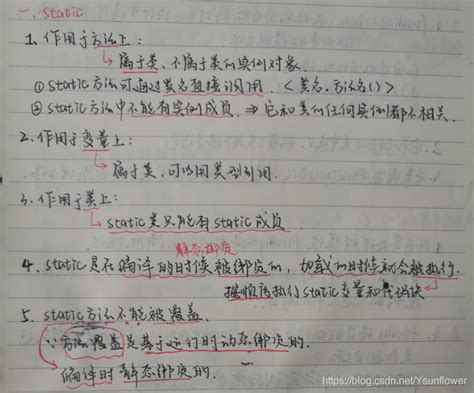 一、static
1、作用于方法上:
属于类、不属于类的实例对象.
① static方法可通过类名直接调用. <类名.方法名()>
② static方法中不能有实例成员 ⇒ 它和类的任何实例都不相关.
2、作用于变量上:
属于类,可以用类型引用.
3、作用于类上:
static类只能有static成员
静态绑定
4、static是在编译的时候被绑定的,加载的时候就会被执行.
按顺序执行static变量和代码块
5、static方法不能被覆盖.
∵方法覆盖是基于运行时动态绑定的.
编译时静态绑定的.
https://blog.csdn.net/Ysunflower